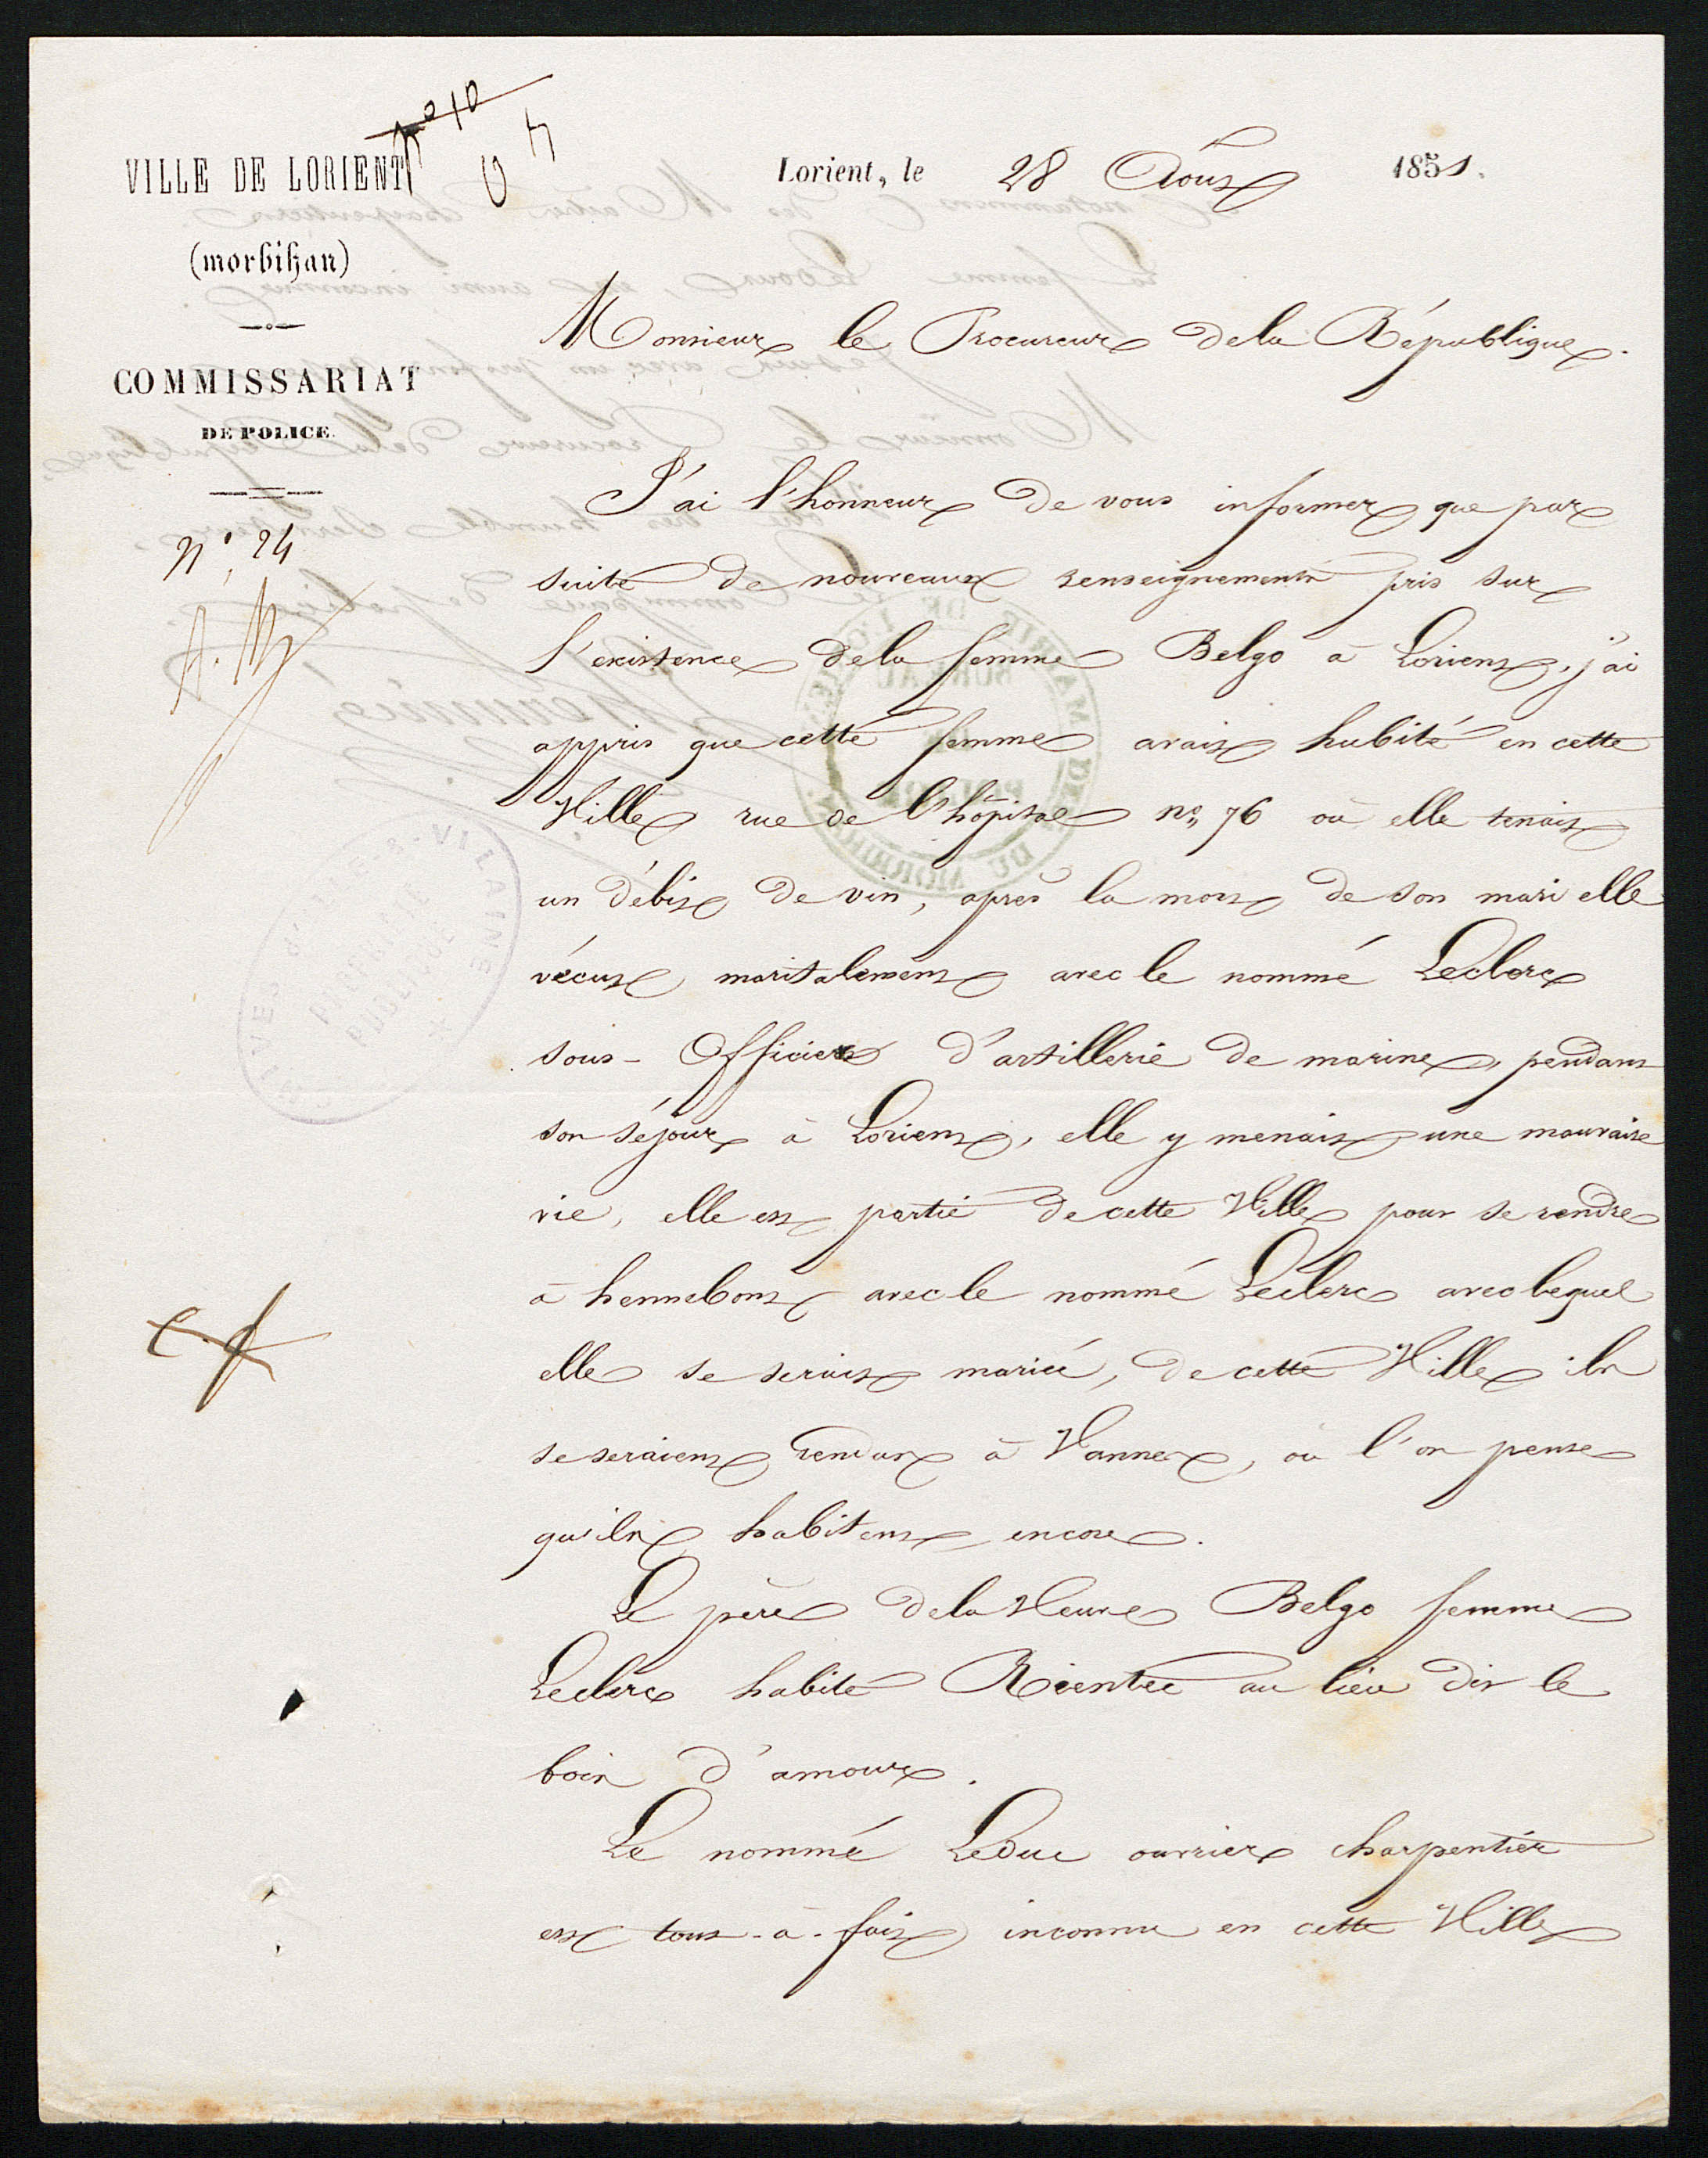 VILLE DE LORIENT
(morbihan)
COMMISSARIAT
DE POLICE.
n° 24
Lorient, le 28 Août 1851.
Monsieur le Procureur de la République.
J'ai l'honneur de vous informer que par
suite de nouveaux renseignements pris sur
l'existence de la femme Belgo à Lorient, j'ai
appris que cette femme avait habité en cette
Ville rue de l'hôpital n° 76 où elle tenait
un débit de vin, après la mort de son mari elle
vécut maritalement avec le nommé Leclerc
sous-Officier d'artillerie de marine, pendant
son séjour à Lorient, elle y menait une mauvaise
vie, elle est partie de cette Ville pour se rendre
à hennebont avec le nommé Leclerc avec lequel
elle se serait mariée, de cette Ville ils
se seraient rendus à Vannes, où l'on pense
qu'ils habitent encore.
Le père de la Veuve Belgo femme
Leclerc habite au lieu dit le
bois d'amour.
Le nommé Leduc ouvrier charpentier
est tout-à-fait inconnu en cette Ville